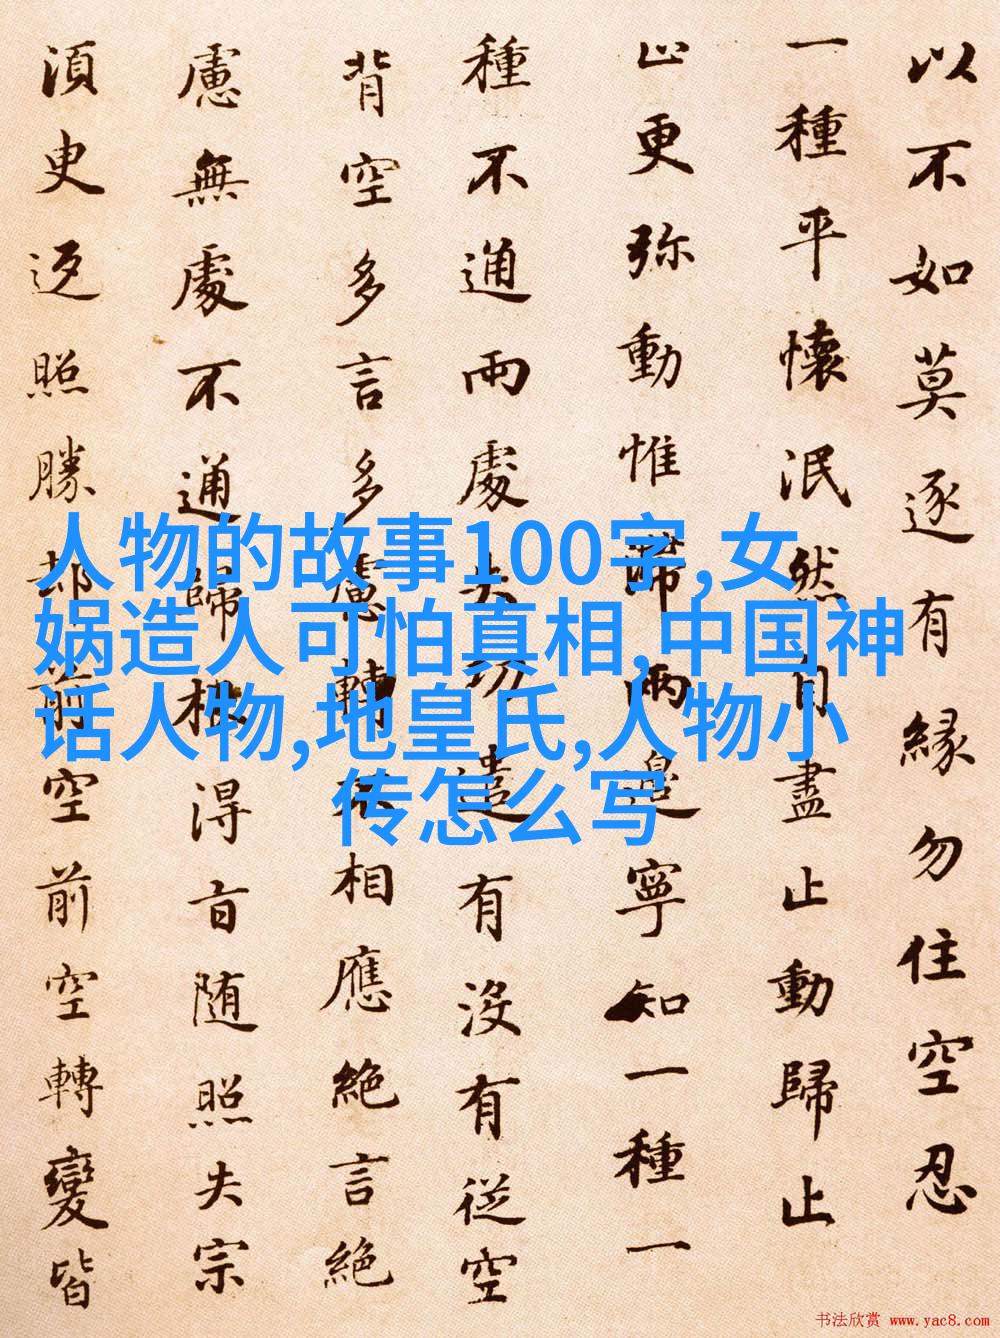 以不如莫逐有緣勿住空忍
一種平懷泯然自盡止動歸止
止更弥動惟滯兩邊寧知一種一
種不通兩處失功遣有沒有從空
背空多言多慮轉不相應絶言絶
慮無處不通歸根得旨随照失宗
須臾返照勝却前空前空轉變皆
人物的故事100字,女
娲造人可怕真相,中国神
话人物,地皇氏,人物小
传怎么写
书法欣赏 www.yac8.com